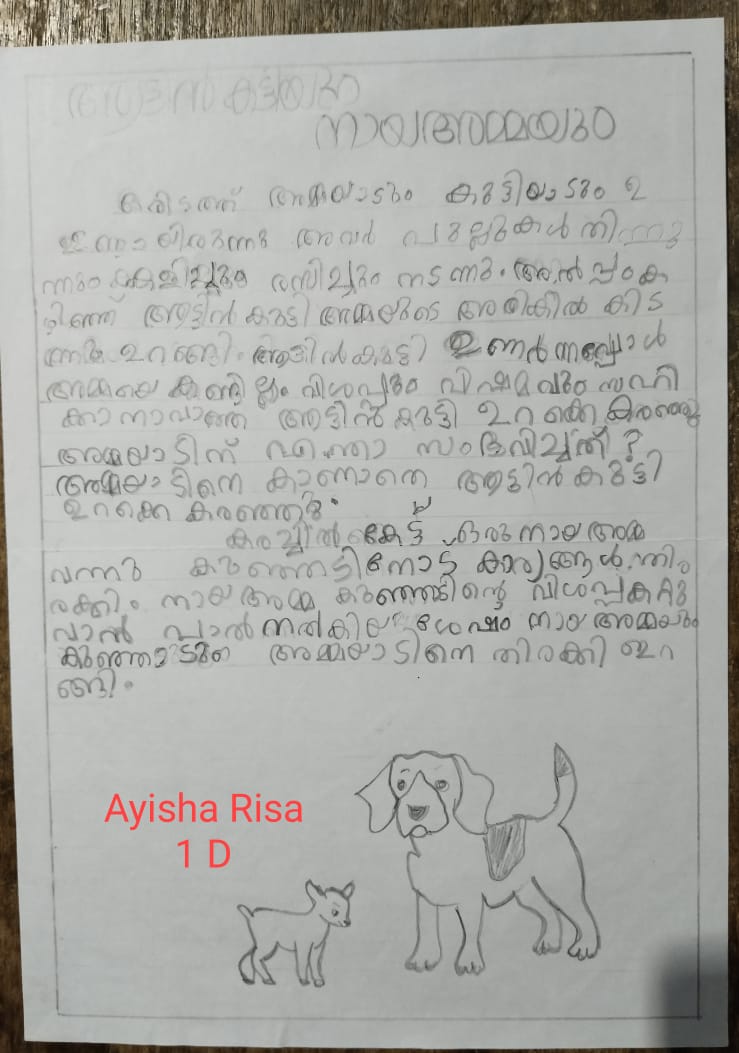 ആട്ടിൻകുട്ടിയും
നായഅമ്മയും
ഒരിടത്ത് അമ്മയാടും കുട്ടിയാടും ഉ
ണ്ടായിരുന്നു അവർ പുല്ലുകൾ തിന്നു
ന്നും കളിച്ചും രസിച്ചും നടന്നു. അൽപ്പംക
ഴിഞ്ഞ് ആട്ടിൻകുട്ടി അമ്മയുടെ അരികിൽ കിട
ന്നു ഉറങ്ങി. ആട്ടിൻകുട്ടി ഉണർന്നപ്പോൾ
അമ്മയെ കണ്ടില്ല വിശപ്പും വിഷമവും സഹി
ക്കാനാവാതെ ആട്ടിൻകുട്ടി ഉറക്കെ കരഞ്ഞു
അമ്മയാടിന് എന്താ സംഭവിച്ചത്?
അമ്മയാടിനെ കാണാതെ ആട്ടിൻകുട്ടി
ഉറക്കെ കരഞ്ഞു.
കരച്ചിൽ കേട്ട് ഒരു നായ അമ്മ
വന്നു കുഞ്ഞാടിനോട് കാര്യങ്ങൾ തി
രക്കി. നായ അമ്മ കുഞ്ഞാടിന്റെ വിശപ്പകറ്റു
വാൻ പാൽ നൽകിയ ശേഷം നായ അമ്മയും
കുഞ്ഞാടും അമ്മയാടിനെ തിരക്കി ഇറ
ങ്ങി.
Ayisha Risa
1 D